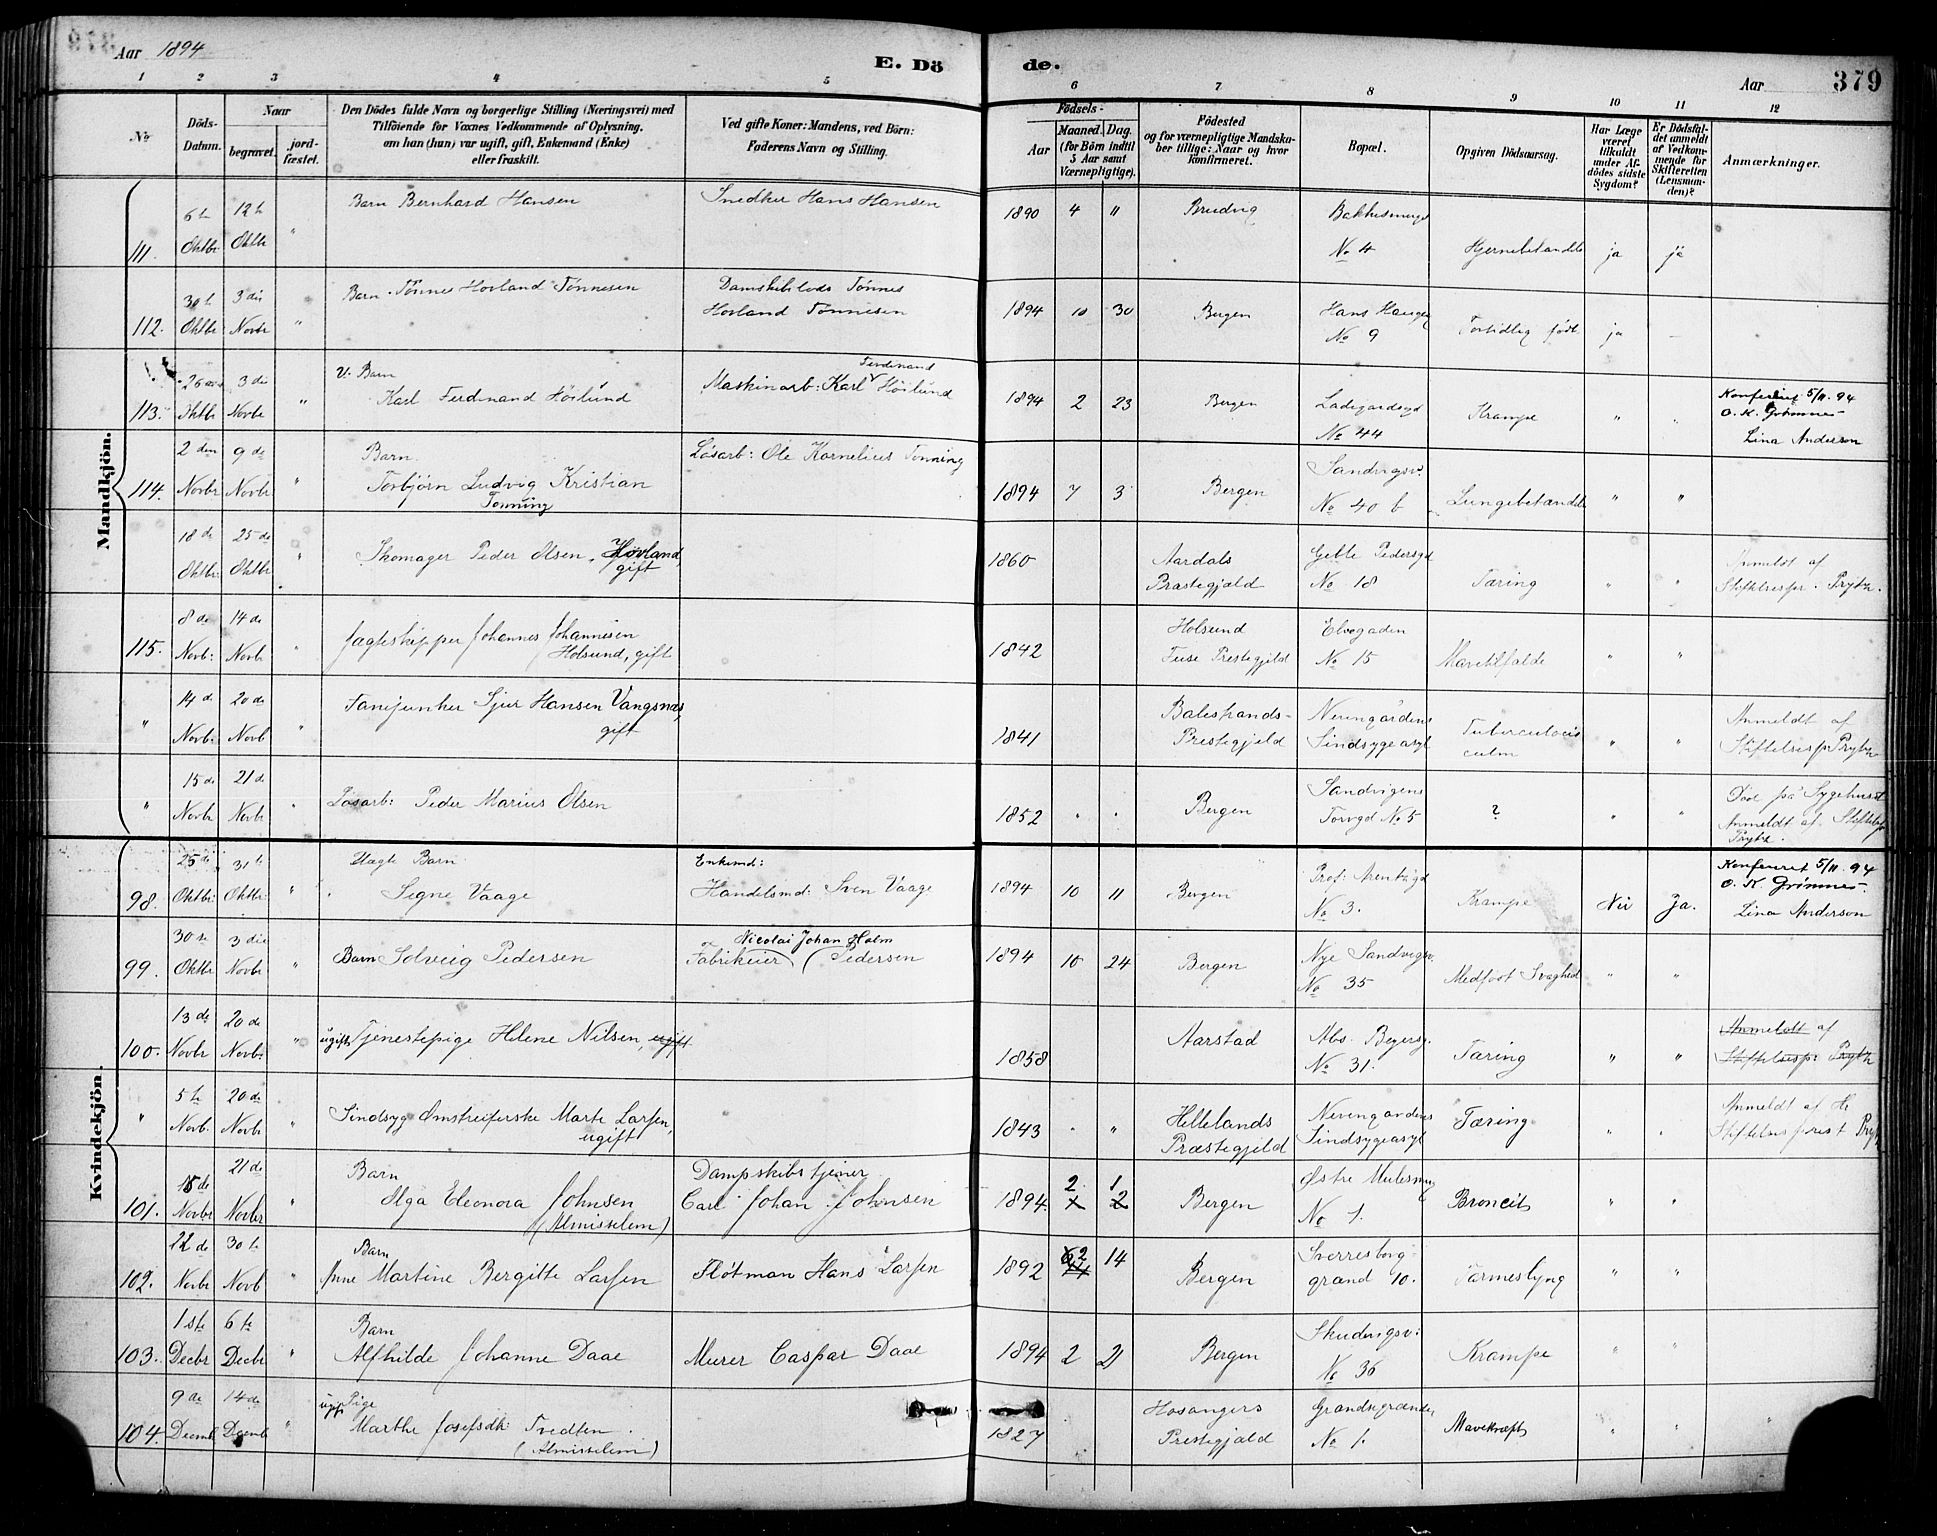 Aar 1894
E. Dö de.
Aar 379
1 2 3 4 5 6 7 8 9 10 11 12
No
Döds-
Datum.
Naar
begravet.
jord-
fæstet.
Den Dödes fulde Navn og borgerlige Stilling (Næringsvei) med
Tilföiende for Voxnes Vedkommende af Oplysning,
om han (hun) var ugift, gift, Enkemand (Enke)
eller fraskilt.
Ved gifte Koner: Mandens, ved Börn:
Faderens Navn og Stilling.
Födsels-
Aar
Maaned. Dag.
(for Börn indtil
5 Aar samt
Værnepligtige).
Födested
og for værnepligtige Mandska-
ber tillige: Naar og hvor
konfirmeret.
Bopæl.
Opgiven Dödsaarsag.
Har Læge
været
tilkaldt
under Af-
dödes sidste
Sygdom?
Er Dödsfal-
det anmeldt
af Vedkom-
mende for
Skifteretten
(Lensman-
den)?
Anmærkninger.
Mandkjön.
6te 12te Barn Bernhard Hansen Snedker Hans Hansen 1890 4 " Brudvig
111. Oktbr Oktbr " No 4 Hjernebetændelse ja ja
30te 3die Barn Tönnes Hovland Tönnesen Damskibslods Tönnes
Hovland Tönnesen
112. Oktbr Novbr " 1894 10 30 Bergen Hans Haugen No 9 Fortidlig födt ja —
V. Barn
3die Karl Ferdinand Höilund Maskinarb: Karl Ferdinand Höilund
113. Oktbr Novbr " 1894 2 23 Bergen Ladegardsgd No 44 Krampe " "
Konfereret 5/11. 94
O. K. Grönnes
Lina Anderson
2den 9de Barn Lösarb: Ole Kornelius Tonning
114. Novbr Novbr " Torbjörn Ludvig Kristian
Tonning
1894 7 3 Bergen Sandvigsv. No 40 b Lungebetændelse " "
18de 25de Skomager Peder Olsen Hovland,
gift
Oktbr: Oktbr " 1860 Aardals
Præstegjæld Geble Pedersgd No 18 Tæring " "
Anmeldt af
Stiftelsespr. Prytz.
8de 14de Jagteskipper Johannes Johannesen
Holsund, gift
115. Novbr: Novbr " 1842 Holsund
Fuse Prestegjeld Elvegaden No 15 " "
14de 20de Fanejunker Sjur Hansen Vangsnæs,
gift
" Novbr: Novb " 1841 Balestrands-
Prestegjeld Neevengårdens
Sindsygeasyl " "
Anmeldt af
Stiftelsespr Prytz
15de 21de
" Novbr Novbr " Lösarb: Peder Marius Olsen
1852 " " Bergen Sandvigens
Torvgd No 5 ? " "
Död på Sygehuset
Anmeldt af Stiftelsespr
Prytz.
Kvindekjön.
25de 31te Uægte Barn Enkemd:
98. Oktbr: Oktbr: " Signe Vaage Handelsmd: Sven Vaage
1894 10 11 Bergen Prof: Arentzgd No 3. Krampe Nei Ja.
Konfereret 5/11. 94
O. K. Grönnes
Lina Anderson
30te 3die Barn Solveig Pedersen Fabrikeier Nicolai Johan Holm Pedersen
99. Oktbr Novbr " 1894 10 24 Bergen Nye Sandvigsv. No 35 Medfödt Svaghed " "
13de 20de ugift Tjenestepige Helene Nilsen, ugift
100. Novbr Novbr: " 1858 Aarstad Abs. Beyersg. No 31. Tæring " "
Anmeldt af
Stiftelsespr: Prytz
5te 20de Sindsyg Omstreiferske Marte Larsen,
ugift
" Novb. Novb " 1843 " " Hellelands
Præstegjeld Neevengårdens
Sindsygeasyl Tæring " "
Anmeldt af He
Stiftelsesprest Prytz
15de 21de Barn Dampskibstjener
101. Novbr Novbr " Olga Eleonora Johnsen
(Almisselem)
Carl Johan Johnsen 1894. 2 1 Bergen Østre Mulesmug No 1. Broncit " "
22de 30te Barn
102. Novbr Novb " Anne Martine Bergitte Larsen Flötman Hans Larsen 1892 2 14 Bergen Sverresborg
grænd 10. Tarmeslyng " "
1ste 6te Barn
103. Decbr Decbr " Alfhilde Johanne Daae Murer Caspar Daae 1894 2 21 Bergen Skudevigsv: No 36 Krampe " "
9de 14de ugift Pige
104. Decmb Decmb " Marthe Josefsdtr: Tvedten.
(Almisselem)
1827 Hosangers
Prestegjæld No 1. Mavekræft " "